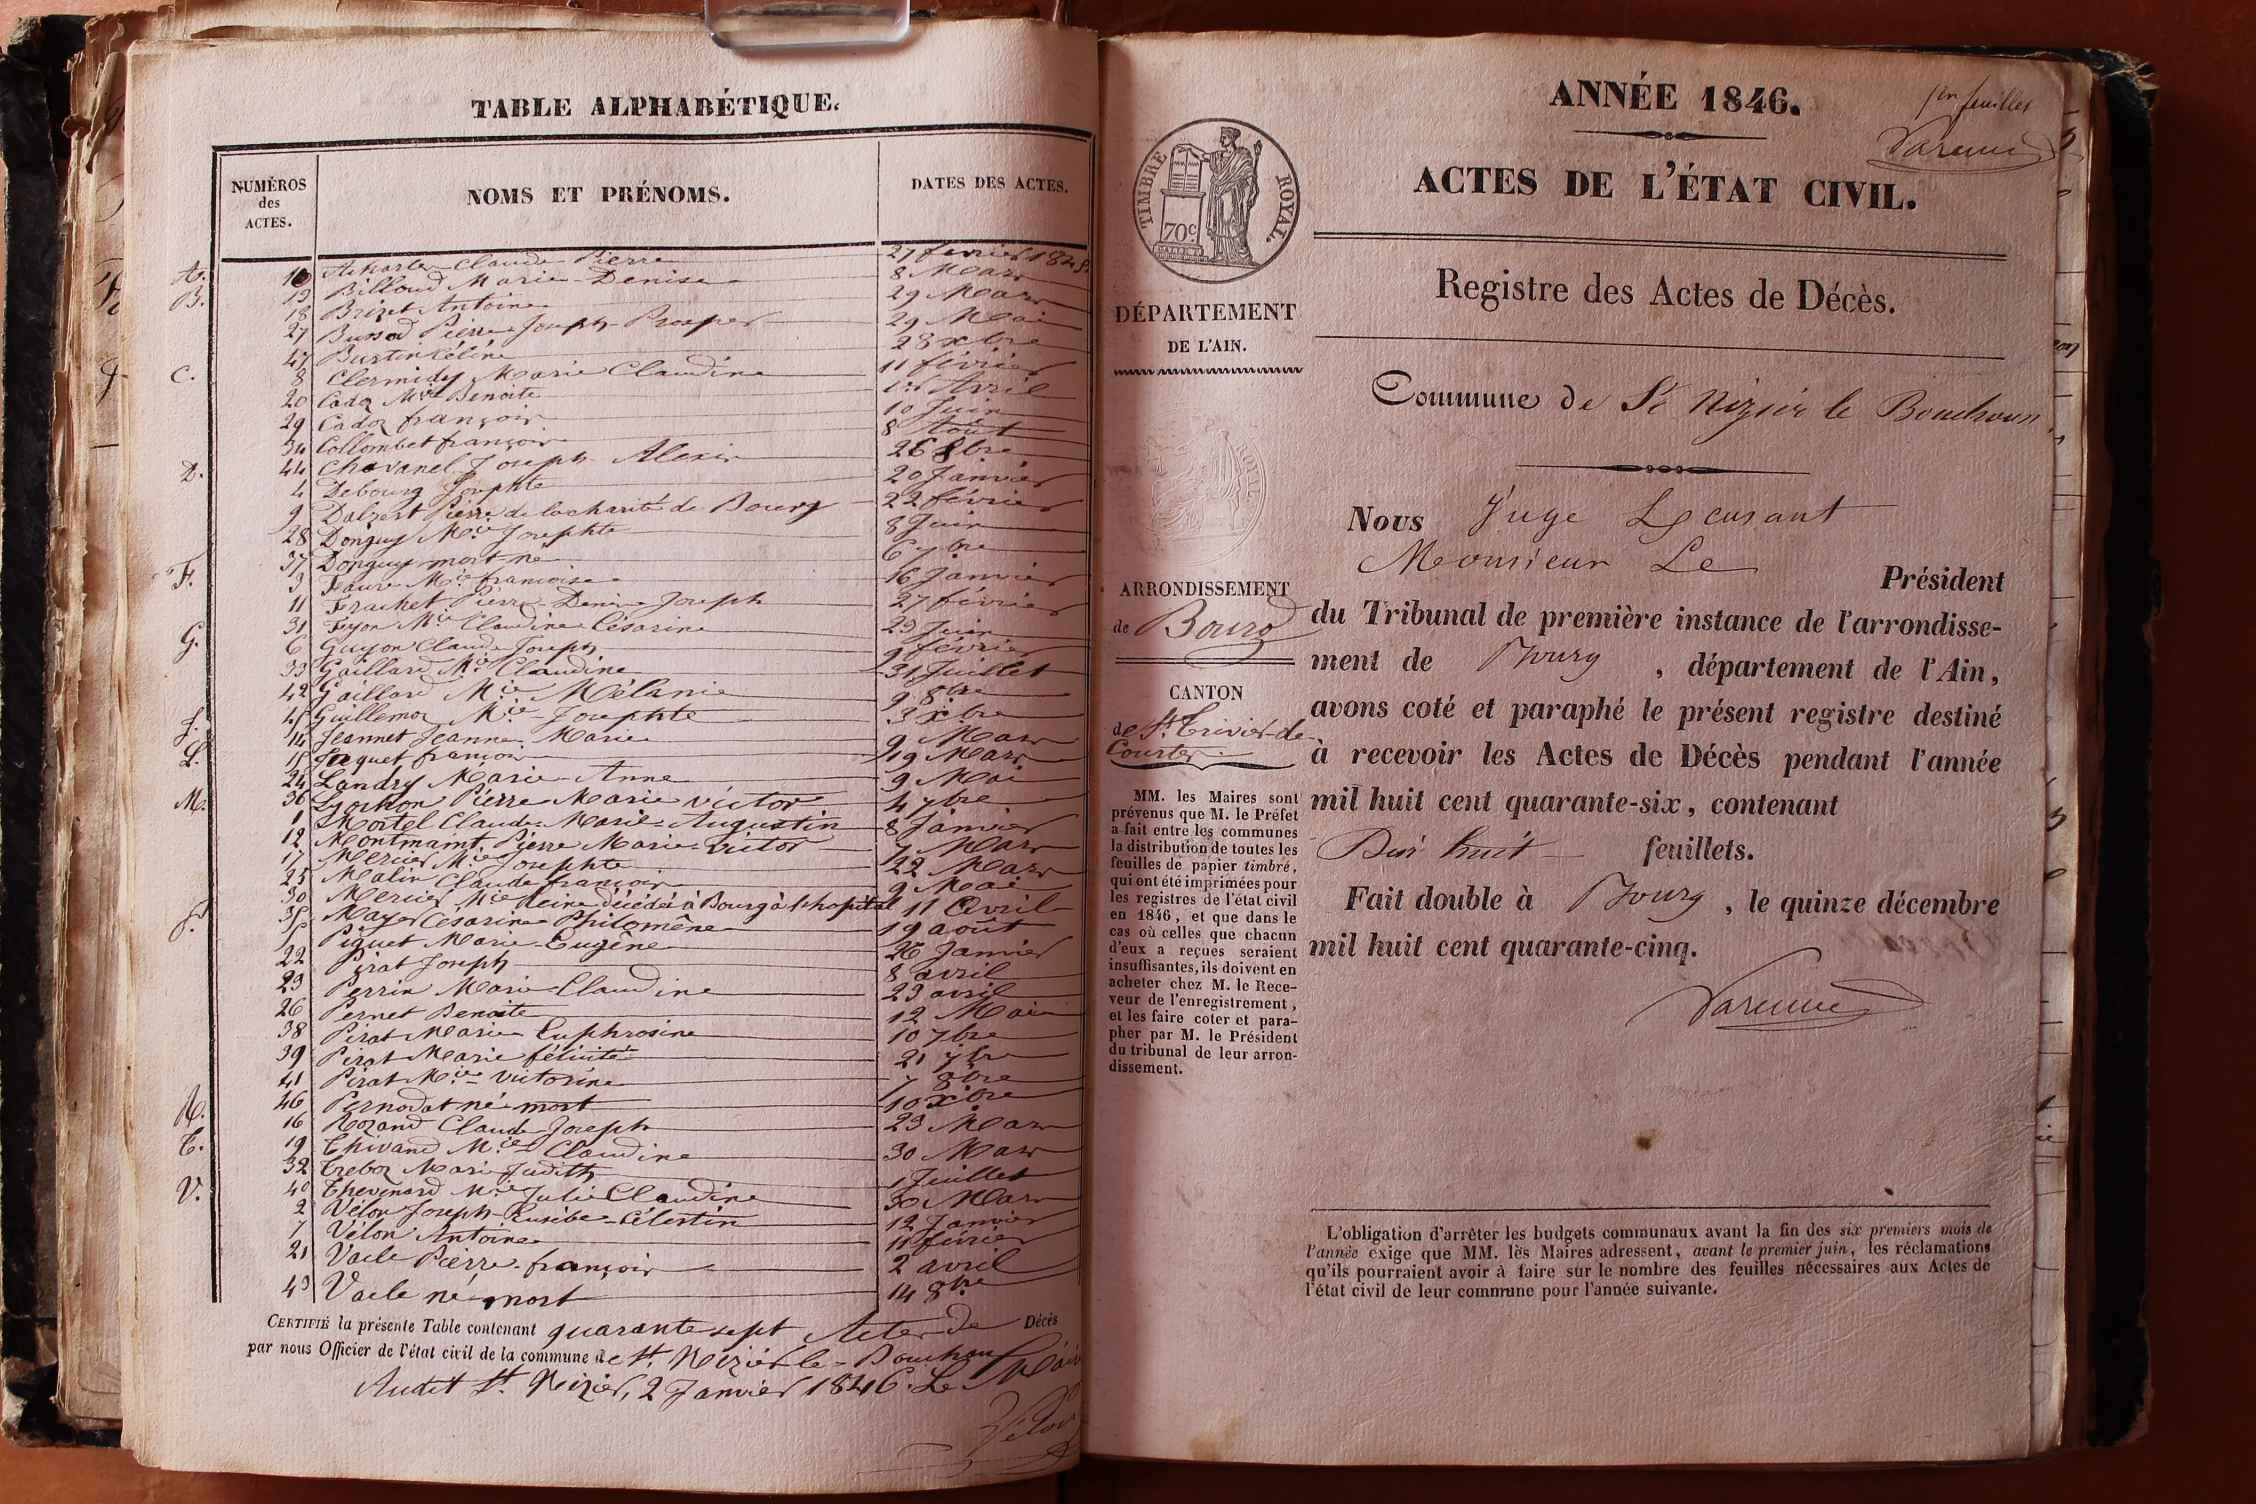 TABLE ALPHABÉTIQUE.
NUMÉROS
des
ACTES.
NOMS ET PRÉNOMS.
DATES DES ACTES.
A. 10 Claude Pierre 27 fevrier 1845
B. 13 Billoud Marie Denise 8 Mars
18 Brizet Antoine 29 Mars
27 Pierre Joseph Prosper 29 Mai
47 Bustin 28 xbre
C. 8 Clermidy Marie Claudine 11 février
20 Cadoz Mie Benoite 1er Avril
29 Cadoz françois 10 Juin
34 Collombet françois 8 Aout
44 Chavanel Joseph Alexis 26 8bre
D. 4 Debourg Josephte 20 Janvier
9 Pierre de la charité de Bourg 22 février
28 Donguy Mie Josephte 8 Juin
37 Donguy mort né 6 7bre
F. 3 Faure Mie francoise 16 Janvier
11 Frachet Pierre Denis Joseph 27 février
31 Feyon Mie Claudine Césarine 29 Juin
G. 6 Guyon Claude Joseph 9 février
33 Gaillard Mie Claudine 31 Juillet
42 Gaillard Mie Mélanie 9 8bre
45 Guillemoz Mie Josephte 3 xbre
J. 14 Jeannet Jeanne Marie 9 Mars
15 Jaquet françois 19 Mars
L. 24 Landry Marie Anne 9 Mai
36 Pierre Marie victor 4 7bre
M. 1 Mortel Claude Marie Augustin 8 Janvier
12 Pierre Marie victor 7 Mars
17 Mercier Mie Josephte 22 Mars
25 Malin Claude françois 9 Mai
30 Mercier Mie Reine décédée à Bourg à l'hopital 11 Avril
35 Mayer Césarine Philomène 19 août
P. 5 Piquet Marie Eugène 26 Janvier
22 Pirat Joseph 8 avril
23 Perrin Marie Claudine 23 avril
26 Pernet Benoite 12 Mai
38 Pirat Marie Euphrosine 10 7bre
39 Pirat Marie félicité 21 7bre
41 Pirat Mie victorine 7 8bre
46 Pernodat né mort 10 xbre
R. 16 Rozand Claude Joseph 23 Mars
T. 19 Thivand Mie Claudine 30 Mars
32 Treboz Marie Judith 1 Juillet
40 Thevenard Mie Julie Claudine 30 Mars
V. 2 Vélon Joseph Eusèbe Célestin 12 Janvier
7 Vélon Antoine 11 février
21 Vaile Pierre françois 2 avril
43 Vaile né mort 14 8bre
CERTIFIÉ la présente Table contenant quarante sept Actes de Décès
par nous Officier de l'état civil de la commune de St. Nizier le Bouchoux
Audit St. Nizier, 2 Janvier 1846. Le Maire
Vélon
1er feuillet
Varenne
ANNÉE 1846.
ACTES DE L'ÉTAT CIVIL.
TIMBRE ROYAL.
70c
Registre des Actes de Décès.
DÉPARTEMENT
DE L'AIN.
Commune de St Nizier le Bouchoux
ARRONDISSEMENT
de Bourg
CANTON
de St. Trivier-de-
Courtes
MM. les Maires sont
prévenus que M. le Préfet
a fait entre les communes
la distribution de toutes les
feuilles de papier timbré,
qui ont été imprimées pour
les registres de l'état civil
en 1846, et que dans le
cas où celles que chacun
d'eux a reçues seraient
insuffisantes, ils doivent en
acheter chez M. le Rece-
veur de l'enregistrement,
et les faire coter et para-
pher par M. le Président
du tribunal de leur arron-
dissement.
Nous Juge
Monsieur Le Président
du Tribunal de première instance de l'arrondisse-
ment de Bourg, département de l'Ain,
avons coté et paraphé le présent registre destiné
à recevoir les Actes de Décès pendant l'année
mil huit cent quarante-six, contenant
Dix huit feuillets.
Fait double à Bourg, le quinze décembre
mil huit cent quarante-cinq.
Varenne
L'obligation d'arrêter les budgets communaux avant la fin des six premiers mois de
l'année exige que MM. les Maires adressent, avant le premier juin, les réclamations
qu'ils pourraient avoir à faire sur le nombre des feuilles nécessaires aux Actes de
l'état civil de leur commune pour l'année suivante.